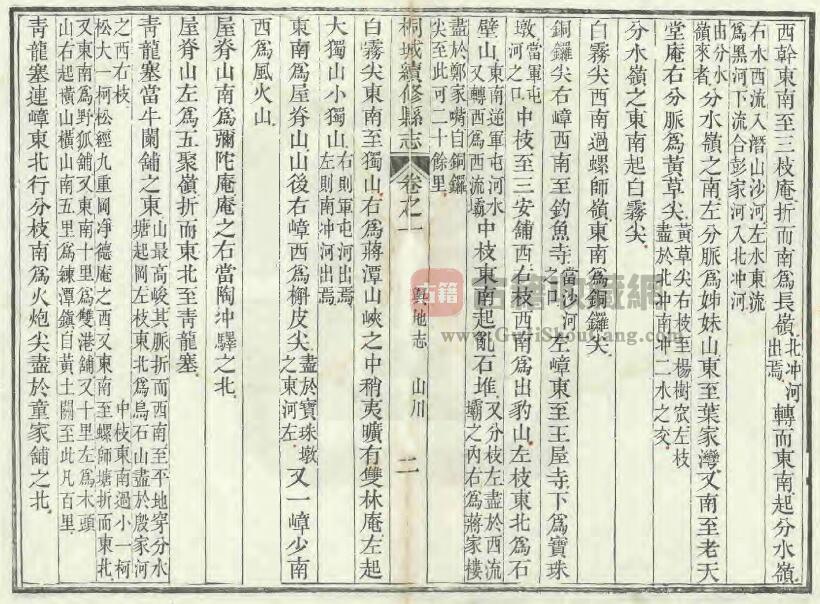 西幹東南至三枝庵折而南爲長嶺北冲河出焉轉而東南起分水嶺
右水西流入潛山沙河左水東流
爲黑河下流合彭家河入北冲河
由分水嶺來者分水嶺之南左分脈爲姊妹山東至葉家灣又南至老天
堂庵右分脈爲黃草尖黃草尖右枝至楊樹㝐左枝盡於北冲南冲二水之交
分水嶺之東南起白霧尖
白霧尖西南過螺師嶺東南爲銅鑼尖
銅鑼尖右嶂西南至釣魚寺當沙河之口左嶂東至王屋寺下爲寶珠
墩當軍屯河之口中枝至三安舖西右枝西南爲出豹山左枝東北爲石
壁山東南逆軍屯河水又轉西爲西流壩中枝東南起亂石堆又分枝左盡於西流壩之內右爲蔣家樓
盡於鄭家嘴自銅鑼
尖至此可二十餘里
桐城續修縣志 卷之一 輿地志 山川 二
白霧尖東南至獨山右爲蔣潭山峽之中稍夷曠有雙林庵左起
大獨山小獨山右則軍屯河出焉左則南冲河出焉
東南爲屋脊山山後右嶂西爲槲皮尖盡於寶珠墩之東河左又一嶂少南
西爲風火山
屋脊山南爲彌陀庵庵之右當陶冲驛之北
屋脊山左爲五聚嶺折而東北至靑龍塞
靑龍塞當牛闌舖之東山最高峻其脈折而西南至平地穿分水塘起岡左枝東北爲烏石山盡於殷家河
之西右枝 中枝東南過小一柯
松大一柯松經九重岡淨德庵之西又東南至螺師塘折而東北
又東南爲野狐舖又東南十里爲雙港舖又十里左爲木頭
山右起橫山橫山南五里爲練潭鎭自黃土關至此凡百里
靑龍塞連嶂東北行分枝南爲火炮尖盡於童家舖之北
古籍
古籍收藏網
www.GujiShouCang.com